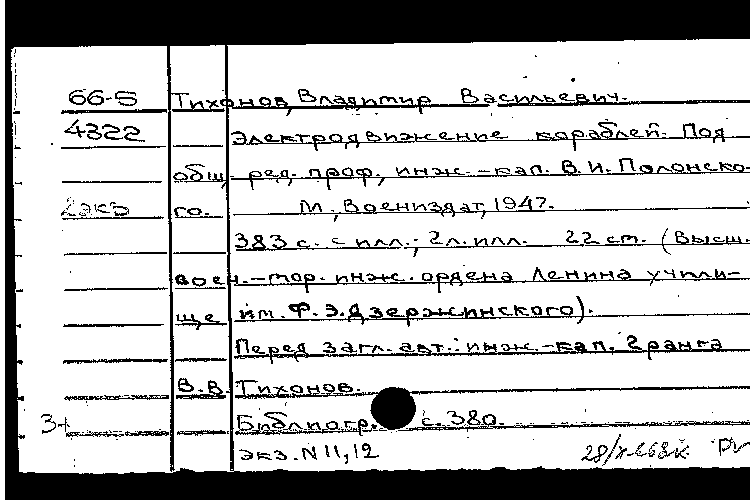 66-5 Тихонов, Владимир Васильевич.
4322 Электродвижение кораблей. Под
общ. ред. проф., инж.-кап. В. И. Полонско-
2 экз го. М., Воениздат, 1947.
383 с. с илл.; 2 л. илл. 22 см. (Высш.
воен.-мор. инж. ордена Ленина учили-
ще им. Ф. Э. Дзержинского).
Перед загл. авт.: инж.-кап. 2 ранга
В. В. Тихонов.
Библиогр. с. 380.
экз. N 11, 12